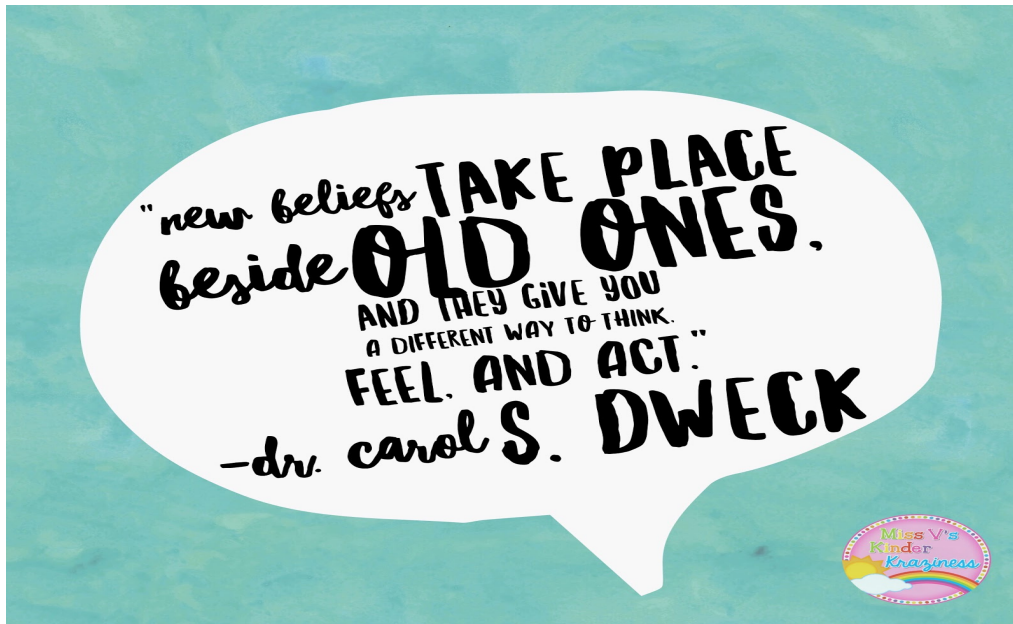 "new beliefs TAKE PLACE
beside OLD ONES,
AND THEY GIVE YOU
A DIFFERENT WAY TO THINK.
FEEL, AND ACT."
-dr. carol S. DWECK
Miss V's
Kinder
Kraziness